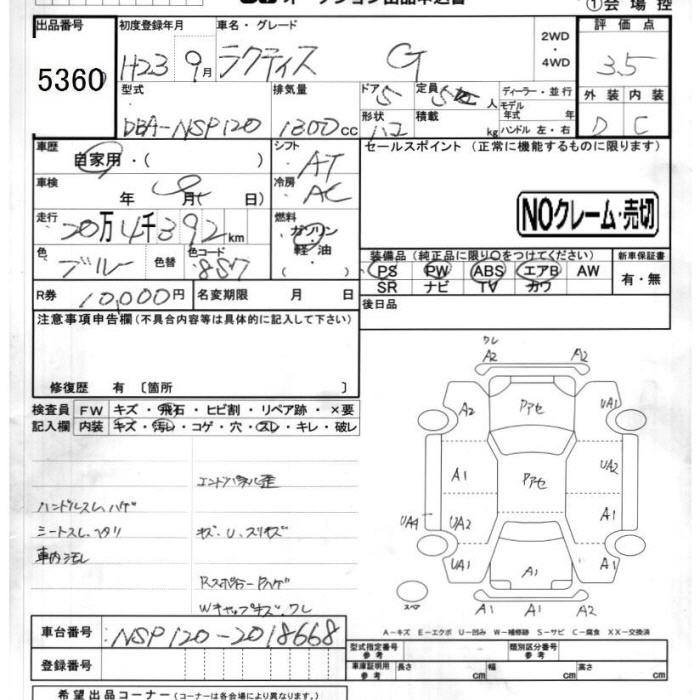 オークション出品申込書
①会場控
出品番号 初度登録年月 車名・グレード 評価点
5360 H23 9月 ラクティス G 2WD・4WD 3.5
型式 排気量 ドア 5 定員 5 人 ディーラー・並行
モデル年式 年
外装 内装
DBA-NSP120 1300cc 形状 ハコ 積載 kg ハンドル 左・右 D C
車歴 シフト セールスポイント (正常に機能するものに限ります)
自家用・( ) AT
車検 冷房
年 月( 日) AC
NOクレーム・売切
走行 燃料
20万4千392km ガソリン・軽油・( )
色 色コード 装備品 (純正品に限り○をつけてください) 新車保証書
ブルー 色替 8S7 PS PW ABS エアB AW 有・無
SR ナビ TV カワ
R券 10,000円 名変期限 月 日
後日品
注意事項申告欄(不具合内容等は具体的に記入して下さい)
修復歴 有 〔箇所 〕
検査員 FW キズ・飛石・ヒビ割・リペア跡・×要
記入欄 内装 キズ・汚レ・コゲ・穴・スレ・キレ・破レ
ワレ
A2 A2
A2 Pアセ UA1
A1 Pアセ UA2
UA4 UA2 A1
UA1 A1 A1
A1 A1 A2
スペア
ハンドルスレ、ハゲ
シートスレ、ヘタリ
車内汚レ
キズ、U、スリキズ
Rスポイラーハゲ
Wキャップキズ、ワレ
A-キズ E-エクボ U-凹み W-補修跡 S-サビ C-腐食 XX-交換済
車台番号 NSP120-2018668
型式指定番号 参考 類別区分番号 参考
登録番号
車庫証明用 参考 長さ cm 幅 cm 高さ cm
希望出品コーナー (コーナーは各会場により異なります。)